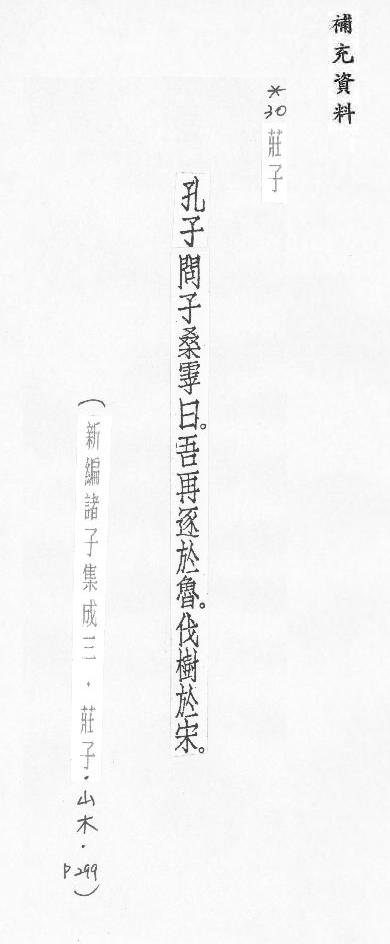 補充資料
*30 莊子
孔子問子桑雽曰。吾再逐於魯。伐樹於宋。
（新編諸子集成三．莊子．山木．P299）